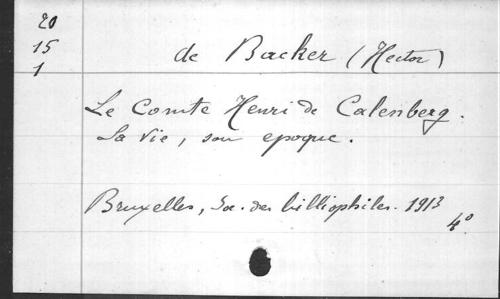 20
15
1
de Backer (Hector)
Le Comte Henri de Calenberg.
Sa vie, son epoque.
Bruxelles, Soc. des billiophiles. 1913
4°